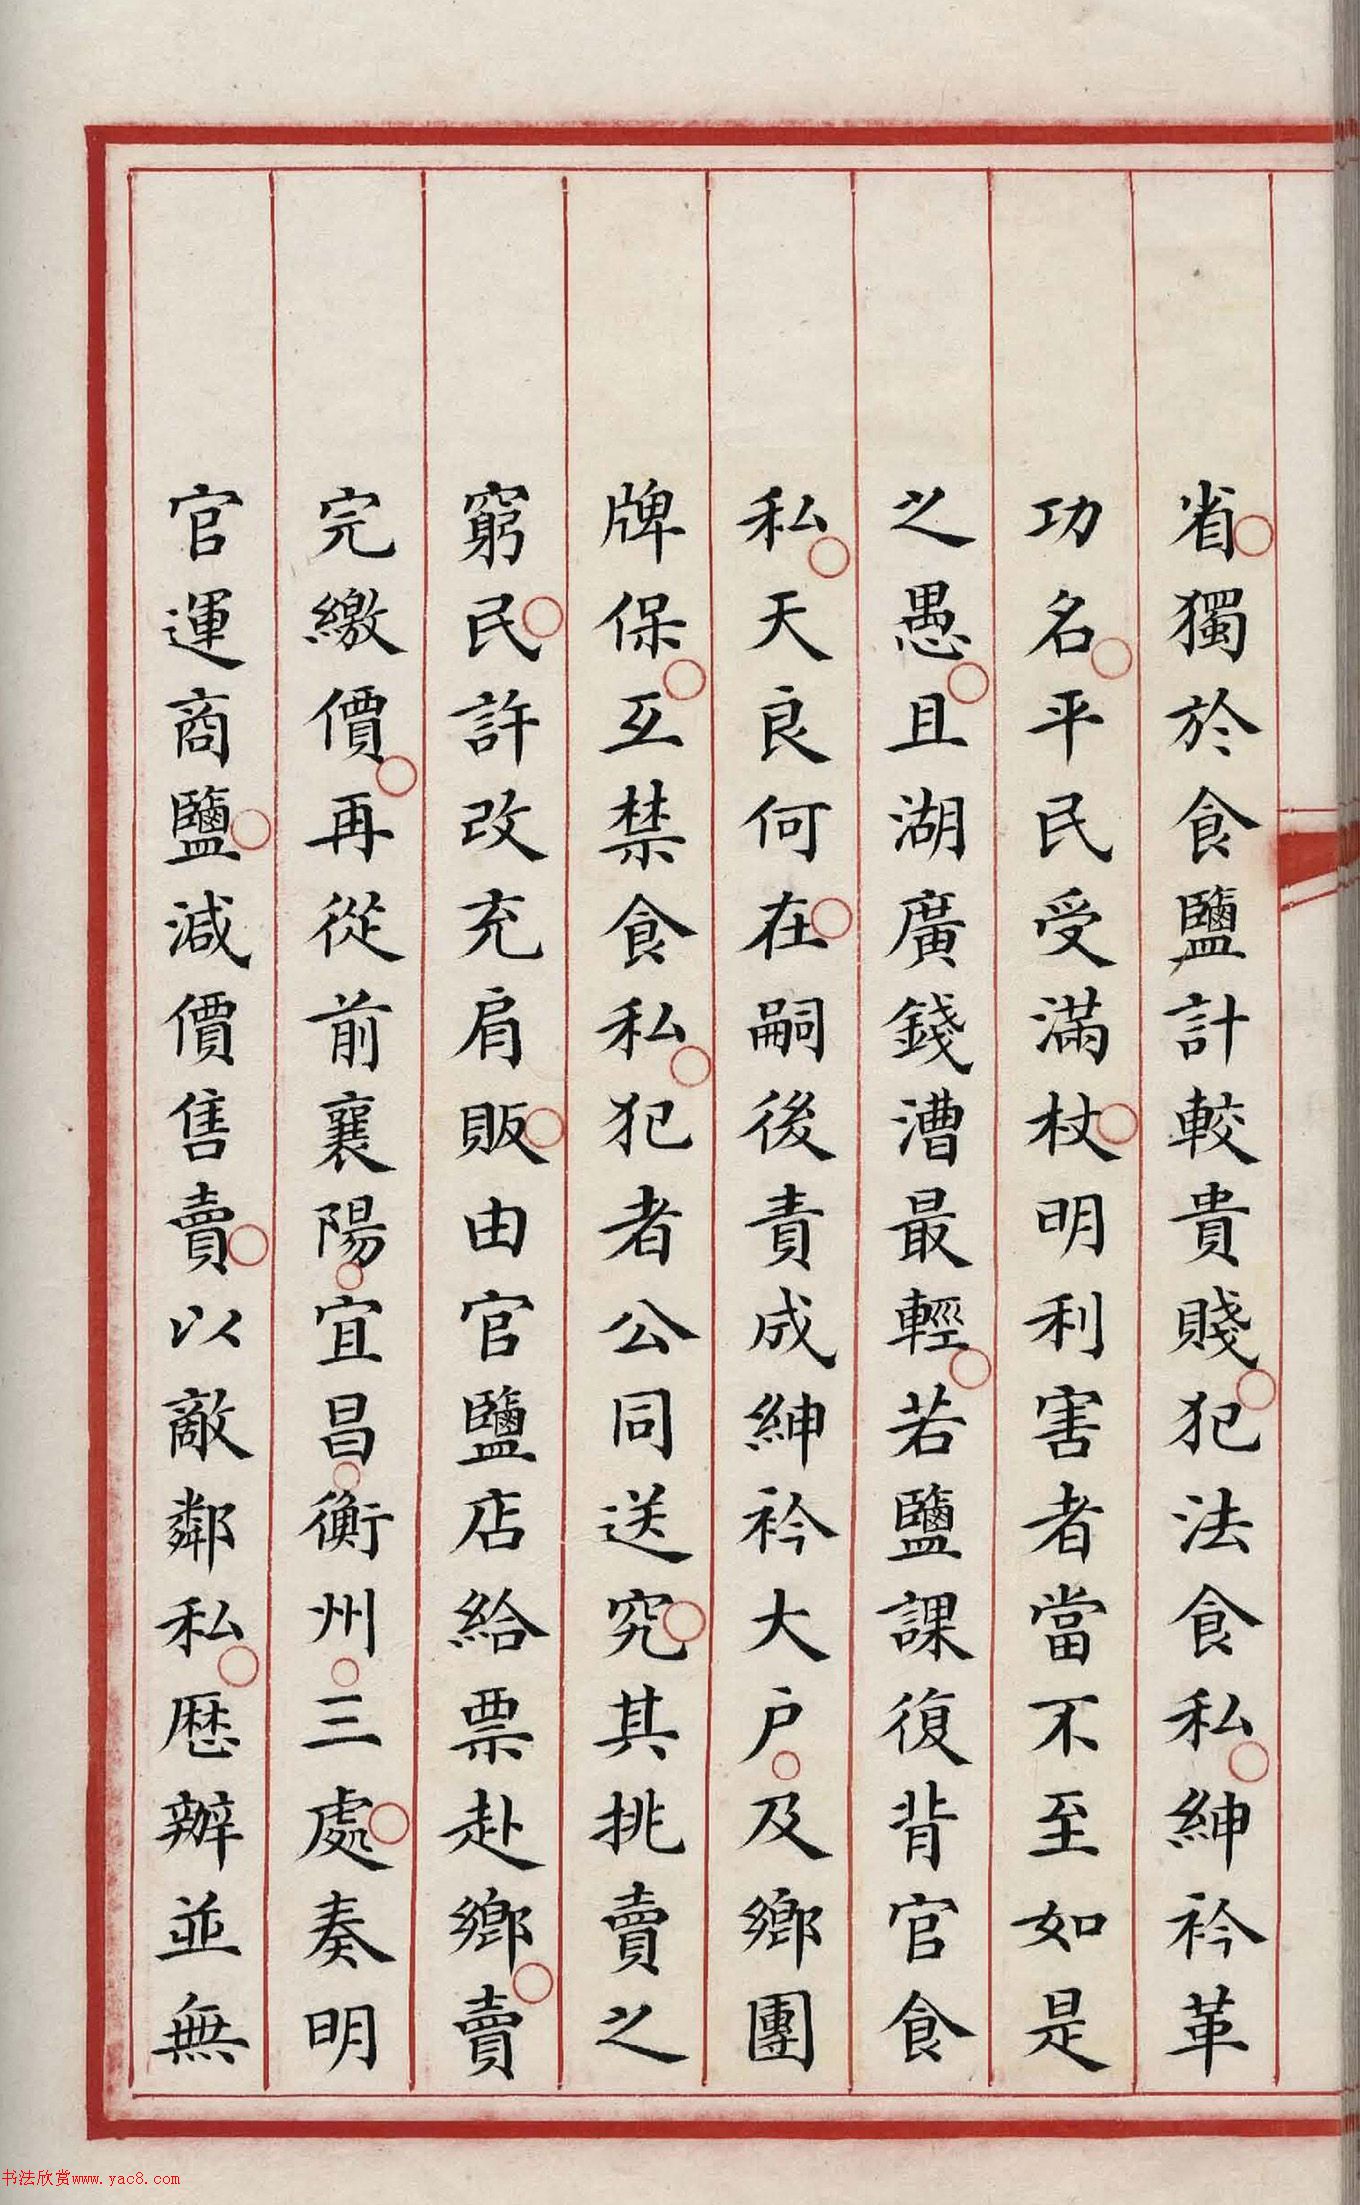 省獨於食鹽計較貴賤犯法食私紳衿革
功名平民受滿杖明利害者當不至如是
之愚且湖廣錢漕最輕若鹽課復背官食
私天良何在嗣後責成紳衿大户及鄉團
牌保互禁食私犯者公同送究其挑賣之
窮民許改充肩販由官鹽店給票赴鄉賣
完繳價再從前襄陽宜昌衡州三處奏明
官運商鹽減價售賣以敵鄰私歷辦並無
书法欣赏www.yac8.com